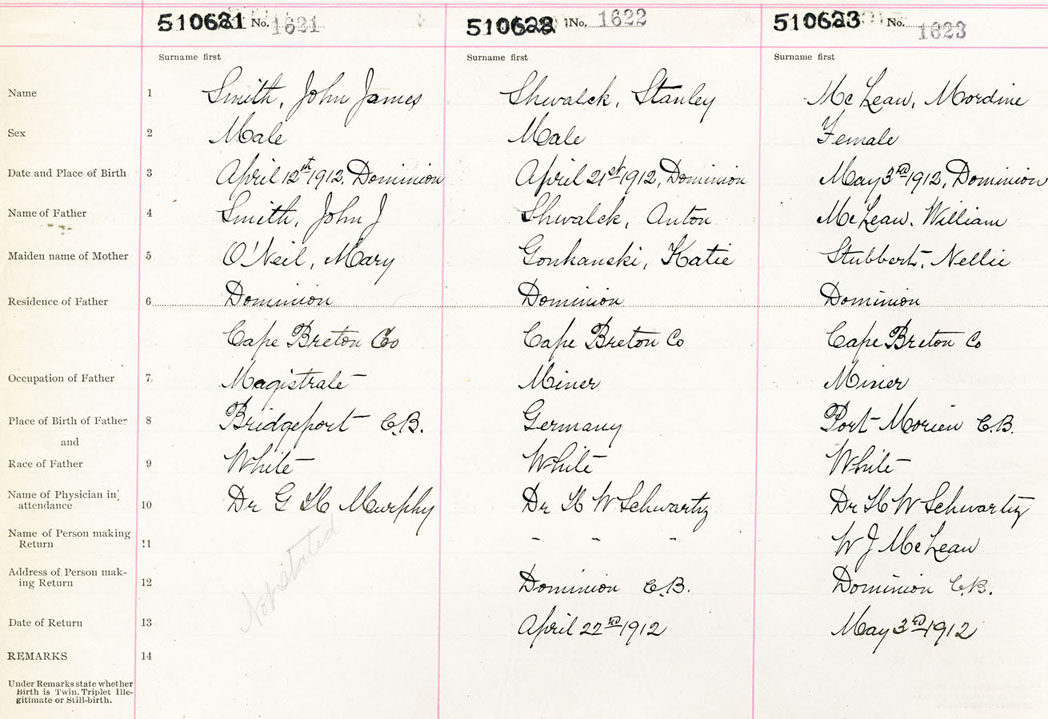 510621 No. 1621 510622 No. 1622 510623 No. 1623
Surname first Surname first Surname first
Name 1 Smith, John James Shwalck, Stanley McLean, Mordine
Sex 2 Male Male Female
Date and Place of Birth 3 April 12th 1912. Dominion April 21st 1912, Dominion May 3rd 1912, Dominion
Name of Father 4 Smith, John J Shwalck, Anton McLean, William
Maiden name of Mother 5 O'Neil, Mary Gonkanski, Katie Stubbert, Nellie
Residence of Father 6 Dominion Dominion Dominion
Cape Breton Co Cape Breton Co Cape Breton Co
Occupation of Father 7 Magistrate Miner Miner
Place of Birth of Father 8 Bridgeport C.B. Germany Port Morien C.B.
and
Race of Father 9 White White White
Name of Physician in
attendance 10 Dr G H Murphy Dr H W Schwartz Dr H W Schwartz
Name of Person making
Return 11 " " " W J McLean
Address of Person mak-
ing Return 12 Dominion C.B. Dominion C.B.
Not stated
Date of Return 13 April 22nd 1912 May 3rd 1912
REMARKS 14
Under Remarks state whether
Birth is Twin, Triplet Ille-
gitimate or Still-birth.